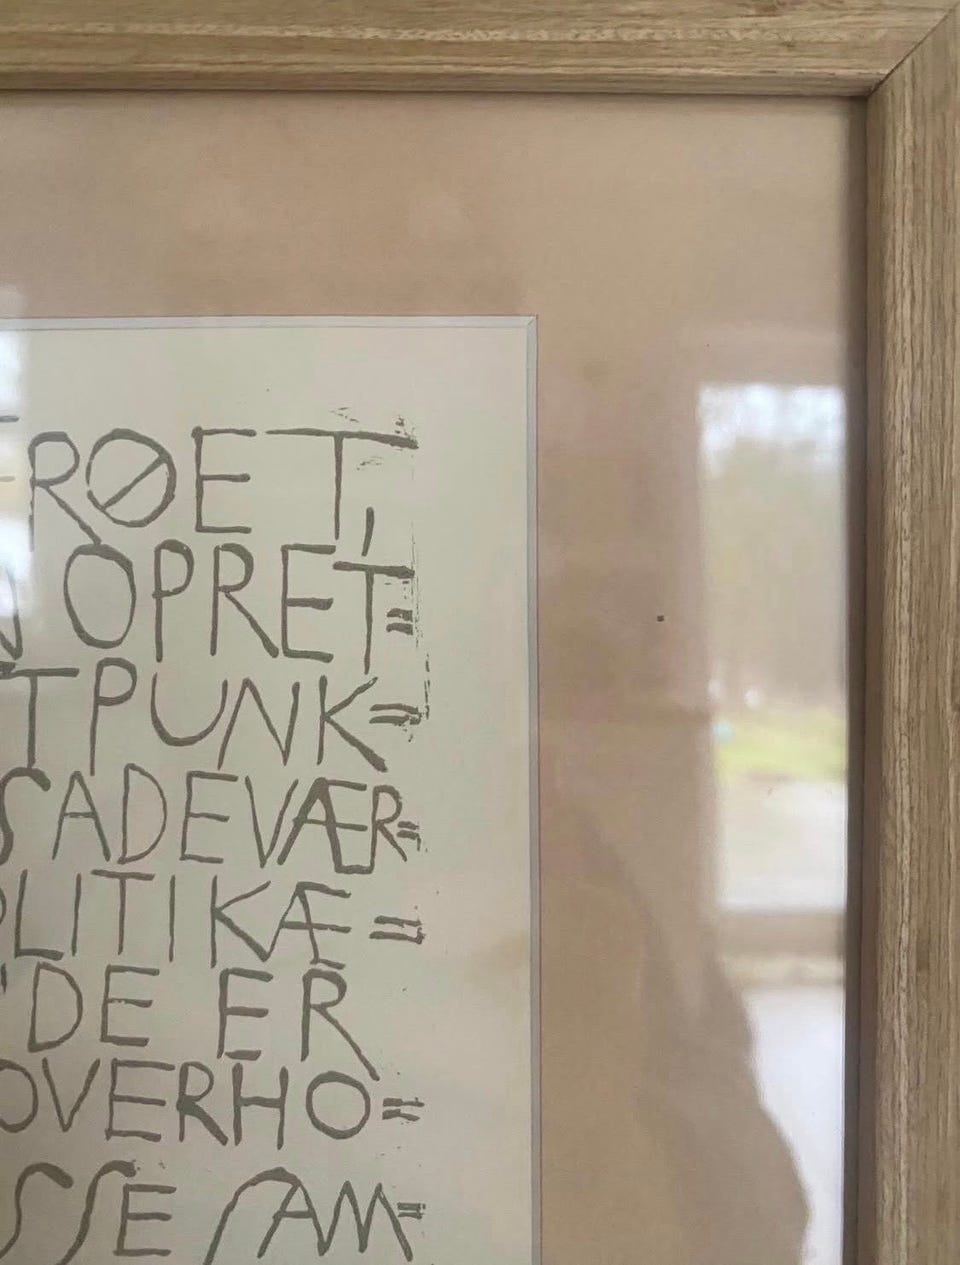 RØET,
OPRET=
TPUNK=
SADEVÆR=
LITIKÆ=
DE ER
OVERHO=
SSE SAM=